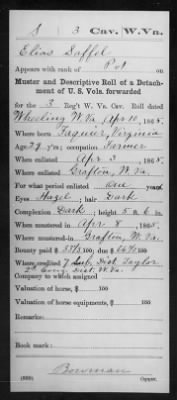 S 3 Cav. W.Va.
Elias Saffel
Appears with rank of Pvt on
Muster and Descriptive Roll of a Detach-
ment of U. S. Vols. forwarded
for the 3 Reg't W. Va. Cav. Roll dated
Wheeling W. Va. Apr 10, 1865.
Where born Faquier, Virginia
Age 29 y'rs; occupation Farmer
When enlisted Apr 3, 1865.
Where enlisted Grafton, W. Va.
For what period enlisted One years.
Eyes Hazel; hair Dark
Complexion Dark; height 5 ft. 6 in.
When mustered in Apr 8, 1865.
Where mustered in Grafton, W. Va.
Bounty paid $ 33 /100; due $ 66 /100
Where credited 7 Sub. Dist. Taylor
2d Cong. Dist. W. Va.
Company to which assigned
Valuation of horse, $ /100
Valuation of horse equipments, $ /100
Remarks:
Book mark:
Bowman
Copyist.